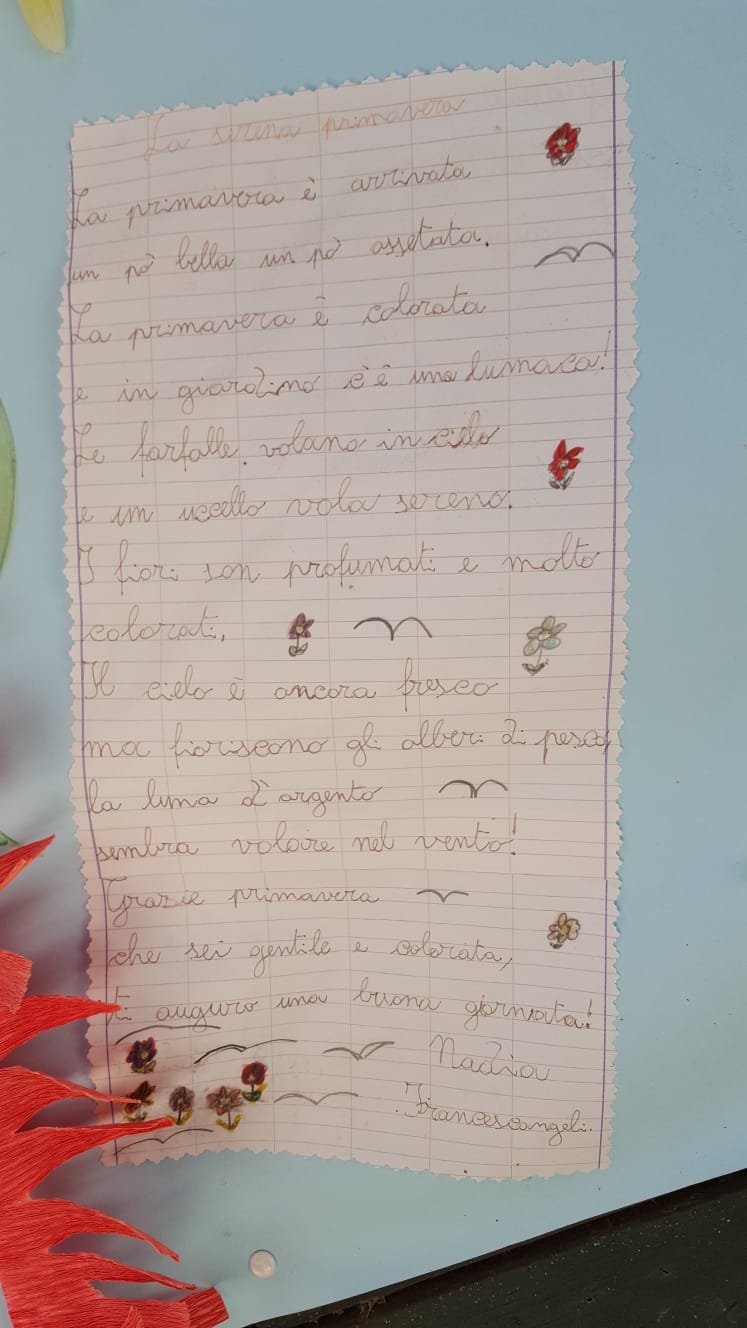 La serena primavera
La primavera è arrivata
un pò bella un pò assetata.
La primavera è colorata
e in giardino c'è una lumaca!
Le farfalle volano in cielo
e un uccello vola sereno.
I fiori son profumati e molto
colorati,
Il cielo è ancora fresco
ma fioriscono gli alberi di pesco,
la luna d'argento
sembra volare nel vento!
Grazie primavera
che sei gentile e colorata,
ti auguro una buona giornata!
Nadia
Francescangeli.